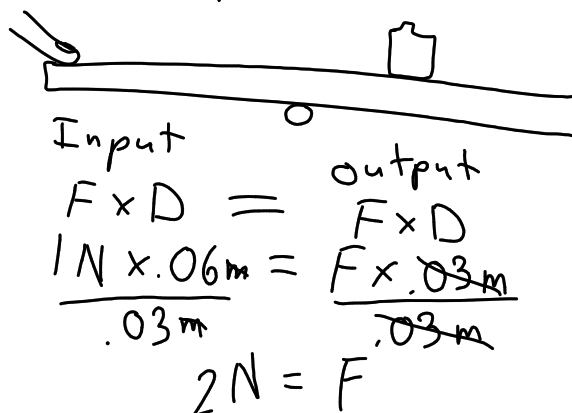 Input output
F x D = F x D
1N x .06m = F x .03m
.03m .03m
2N = F